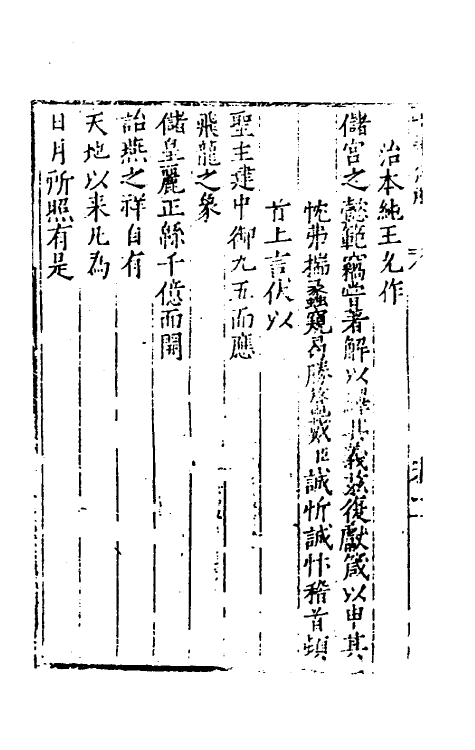 治本純王允作
儲宮之懿範竊嘗著解以繹其義茲復獻箴以申其
忱弗揣蠡窺曷勝鰲戴臣誠忻誠忭稽首頓
首上言伏以
聖主建中御九五而應
飛龍之象
儲皇麗正綿千億而開
詒燕之祥自有
天地以来凡為
日月所照有是